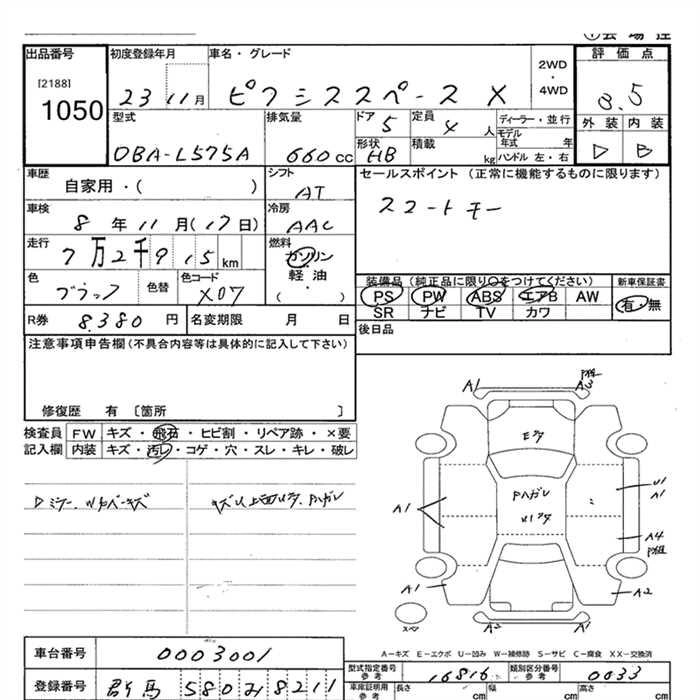 出品番号
[2188]
1050
初度登録年月
23 11月
車名・グレード
2WD
・
4WD
評価点
3.5
外装 内装
D B
型式
DBA-L575A
排気量
660cc
ドア
5
定員
4 人
形状
HB
積載
kg
ディーラー・並行
モデル
年式 年
ハンドル 左・右
車歴
自家用・( )
シフト
AT
セールスポイント (正常に機能するものに限ります)
スマートキー
車検
8 年 11 月(17日)
冷房
AAC
走行
7万2千915km
燃料
ガソリン
・
軽油
( ・ )
色
ブラック
色替
色コード
X07
装備品(純正品に限り○をつけてください)
PS PW ABS エアB AW
SR ナビ TV カワ
新車保証書
有・無
R券 8,380 円
名変期限 月 日
後日品
注意事項申告欄(不具合内容等は具体的に記入して下さい)
修復歴 有 〔箇所 〕
検査員
記入欄
FW キズ・飛石・ヒビ割・リペア跡・×要
内装 キズ・汚レ・コゲ・穴・スレ・キレ・破レ
A1
A3
Pハガレ
A1
U1
A1
A4
A1
A2
A2
A1
A-キズ E-エクボ U-凹み W-補修跡 S-サビ C-腐食 XX-交換済
車台番号 0003001
登録番号 群馬 580み8211
型式指定番号
参考
16816
類別区分番号
参考
0033
車庫証明用
参考
長さ 幅 高さ